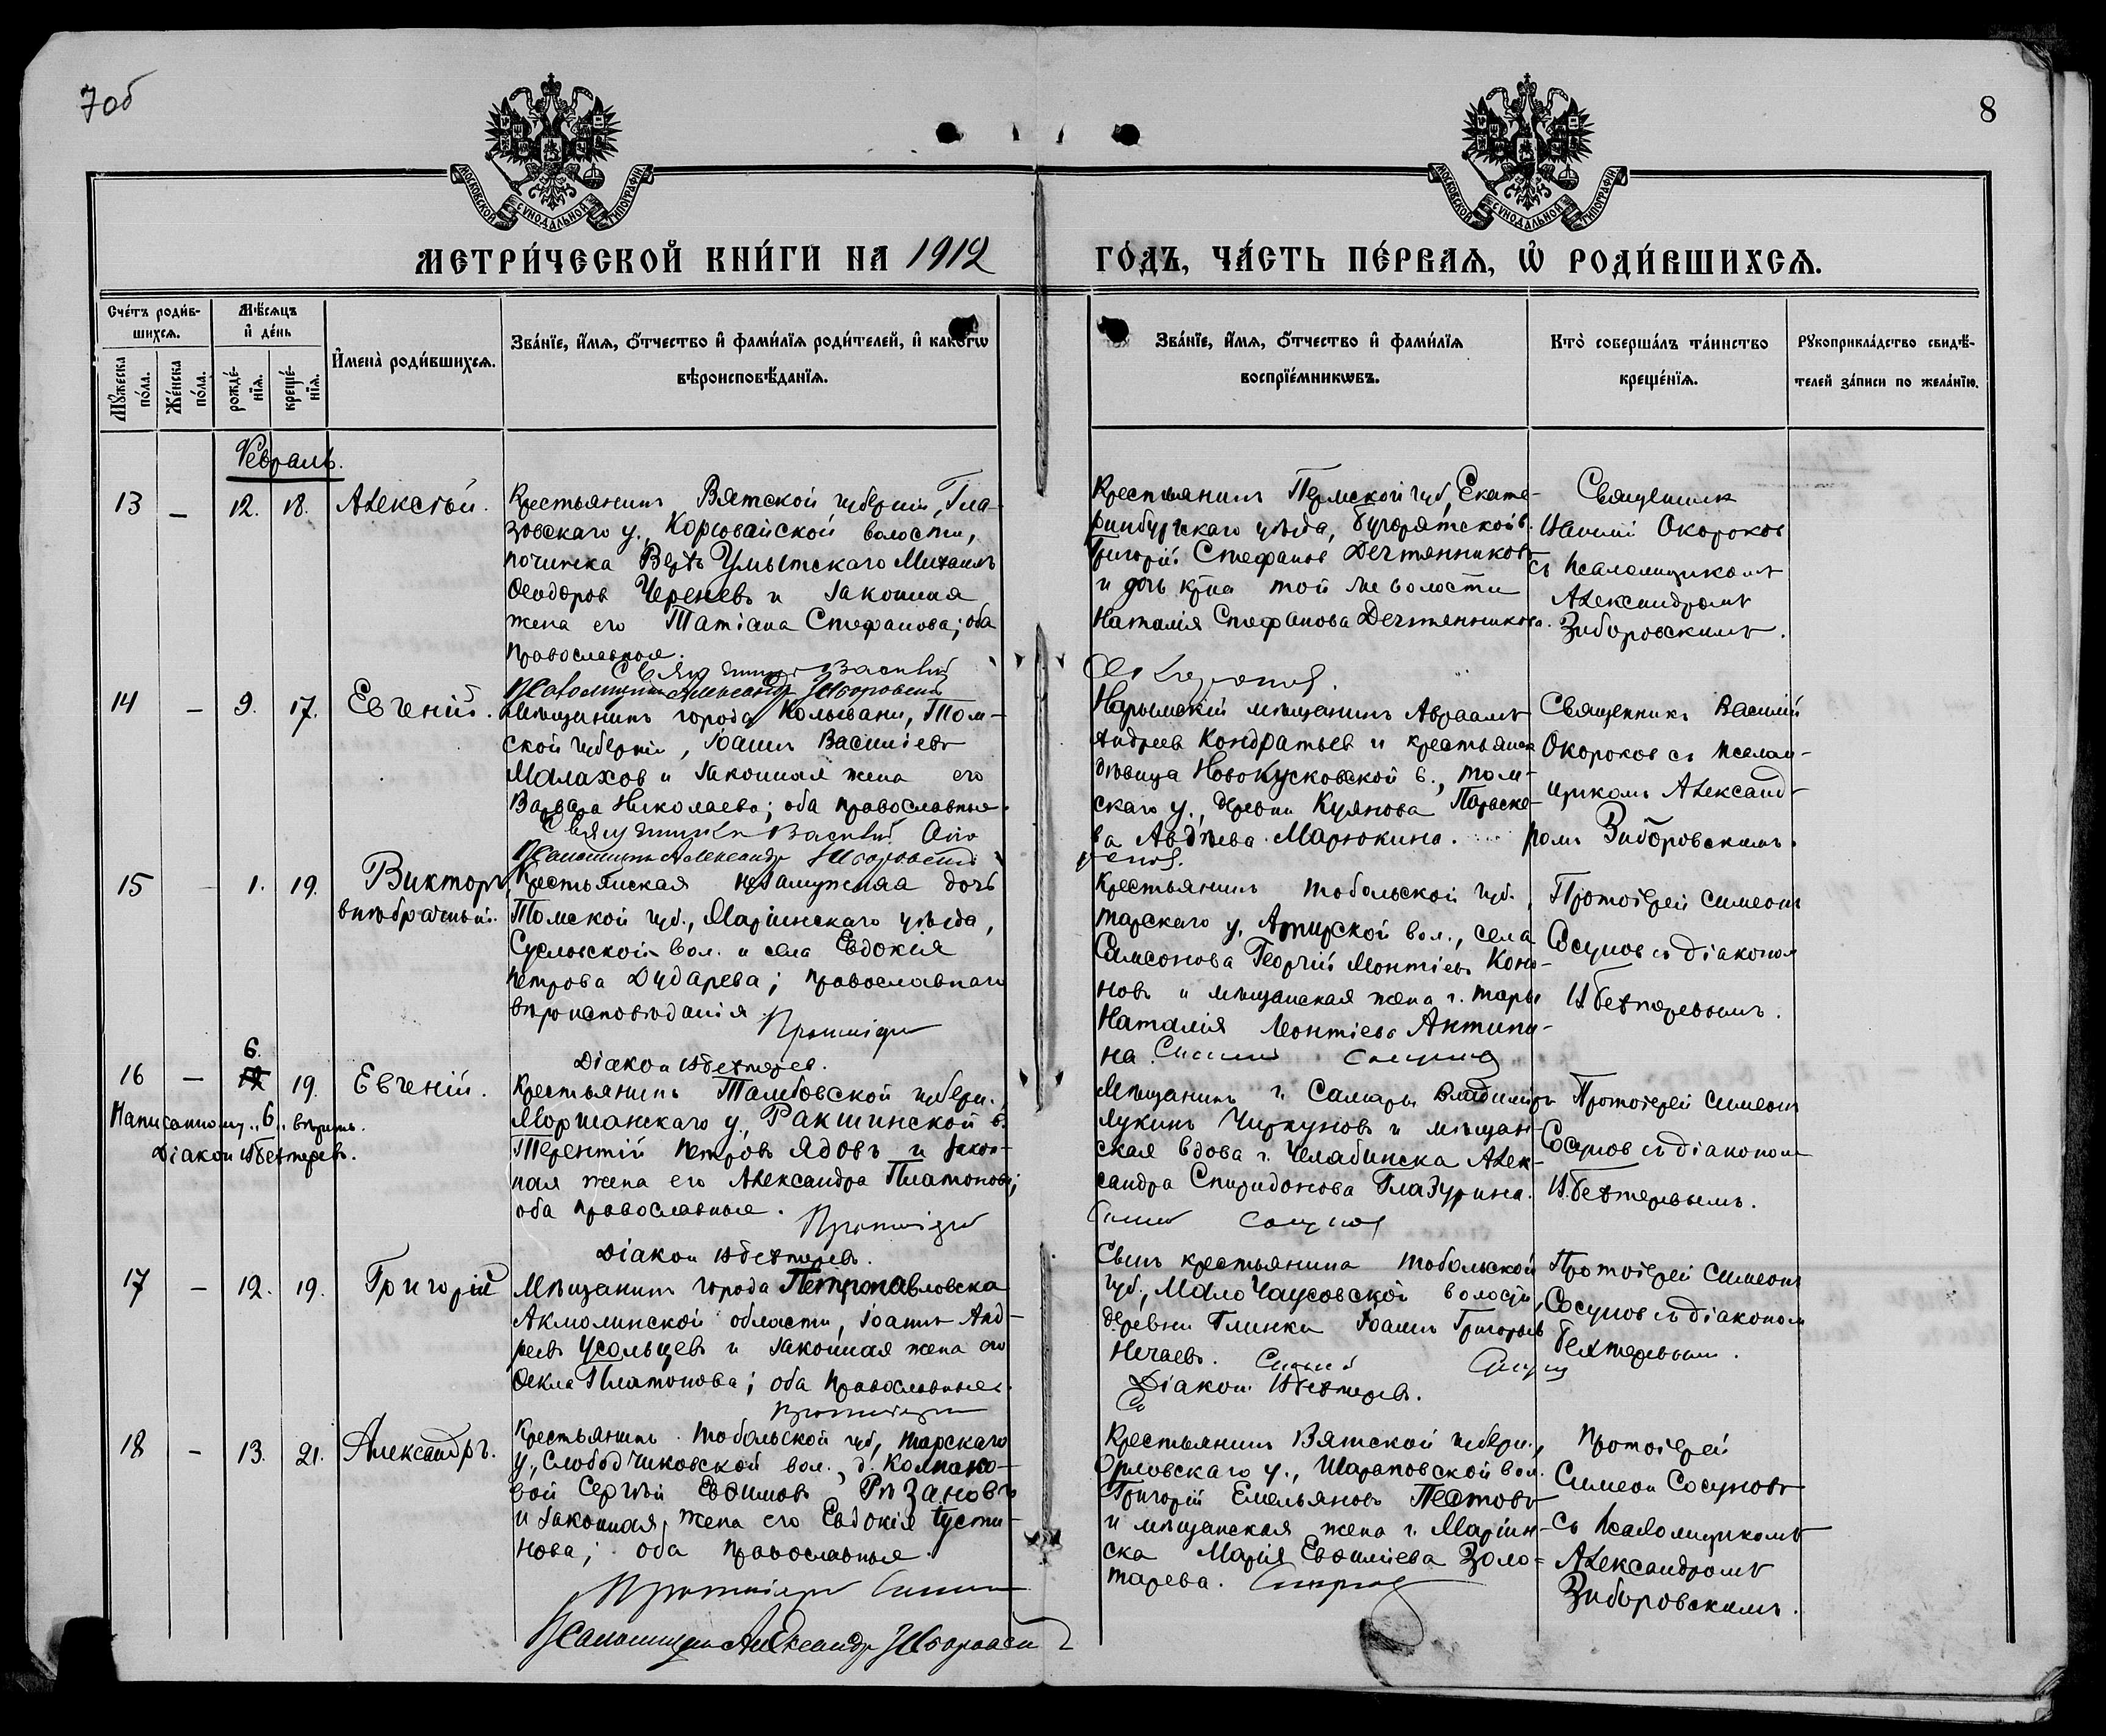 7об
8
МОСКОВСКОЙ СУНОДАЛЬНОЙ ТИПОГРАФІИ
МОСКОВСКОЙ СУНОДАЛЬНОЙ ТИПОГРАФІИ
МЕТРИ́ЧЕСКОЙ КНИ́ГИ НА 1912
ГО́ДЪ, ЧА́СТЬ ПЕ́РВАЯ, Ѡ҆ РОДИ́ВШИХСЯ.
Сче́тъ роди́в-
шихся.
Мꙋ́жеска по́ла.
Же́нска по́ла.
Мѣ́сяцъ
и҆ де́нь
рожде́-
нїя.
креще́-
нїя.
И҆мена̀ роди́вшихся.
Зва́нїе, и҆́мя, ѻ҆́тчество и҆ фами́лїя роди́телей, и҆ како́гѡ
вѣроисповѣ́данїя.
Зва́нїе, и҆́мя, ѻ҆́тчество и҆ фами́лїя
воспрїе́мникѡвъ.
Кто̀ соверша́лъ та́инство
креще́нїя.
Рꙋкоприкла́дство свидѣ́-
телей за́писи по жела́нїю.
Февраль.
13 — 12. 18. Алексѣй.
Крестьянинъ Вятской губерніи, Гла-
зовскаго у., Корсовайской волости,
починка Верхъ Умытскаго Михаилъ
Ѳеодоров Череневъ и законная
жена его Татіана Стефанова; оба
православные.
Священникъ Василій
Псаломщикъ Александр Зиборовскій
Крестьянинъ Пермской губ., Екате-
ринбургскаго уѣзда,
Григорій Стефанов Дегтянниковъ
и дочь кр̃на той же волости
Наталія Стефанова Дегтянникова.
Окороков.
Священник
Василій Окороков
съ псаломщикомъ
Александромъ
Зиборовскимъ.
14 — 9. 17. Евгеній.
Мѣщанинъ города Колывани, Том-
ской губерніи, Іоаннъ Васильевъ
Малахов и законная жена его
Варвара Николаева; оба православные.
Священникъ Василій Око
Псаломщикъ Александр Зиборовскій
Нарымскій мѣщанинъ Авраамъ
Андреев Кондратьев и крестьянск
дѣвица Ново Кусковской в., Том-
скаго у., деревни Куянова Параске-
ва Авдѣева Марюкина.
роков.
Священникъ Василій
Окороков съ псалом-
щикомъ Александ-
ромъ Зиборовскимъ.
15 — 1. 19. Викторъ,
внѣбрачный.
Крестьянская незамужняя дочь
Томской губ., Маріинскаго уѣзда,
Сусловской вол. и села Евдокія
Петрова Дударева; православнаго
вѣроисповѣданія.
Протоіерей
Діакон И Бехтерев.
Крестьянинъ Тобольской губ.,
Тарскаго у. Атирской вол., села
Самсонова Георгій Леонтіевъ Коно-
новъ и мѣщанская жена г. Тары
Наталія Леонтіева Антипи-
на. Симеон Сосунов
Протоіерей Симеонъ
Сосунов съ діакономъ
И Бехтеревымъ.
16 — 6. 12 19. Евгеній.
Написанному „6„ вѣрить.
Діакон И Бехтерев.
Крестьянинъ Тамбовской губерн.,
Моршанскаго у., Ракшинской в.
Терентій Петровъ Ядовъ и закон-
ная жена его Александра Платонова;
оба православные.
Протоіерей
Діакон И Бехтерев.
Мѣщанинъ г. Самары Владиміръ
Лукинъ Чиркуновъ и мѣщан-
ская вдова г. Челябинска Алек-
сандра Спиридонова Глазурина.
Симеон Сосунов
Протоіерей Симеонъ
Сосунов съ діакономъ
И. Бехтеревымъ.
17 — 12. 19. Григорій
Мѣщанинъ города Петропавловска
Акмолинской области, Іоаннъ Анд-
реевъ Усольцевъ и законная жена его
Ѳекла Платонова; оба православные.
Протоіерей
Сынъ крестьянина Тобольской
губ., Мало Чаусовской волости,
деревни Глинки Іоаннъ Григорьев
Нечаевъ. Симеон Сосунов
Діакон И Бехтерев.
Протоіерей Симеонъ
Сосунов съ діакономъ
Бехтеревым.
18 — 13. 21. Александръ.
Крестьянинъ Тобольской губ., Тарскаго
у., Слободчиковской вол., д. Колпако-
вой Сергѣй Евѳимовъ Рѣзановъ
и законная жена его Евдокія Iусти-
нова; оба православные.
Протоіерей Симеон
Псаломщикъ Александр Зиборовскій
Крестьянинъ Вятской губерн.,
Орловскаго у., Шараповской вол.
Григорій Емельяновъ Пестовъ
и мѣщанская жена г. Маріин-
ска Марія Евѳиміева Золо-
тарева. Сосунов
Протоіерей
Симеон Сосуновъ
съ псаломщикомъ
Александромъ
Зиборовскимъ.